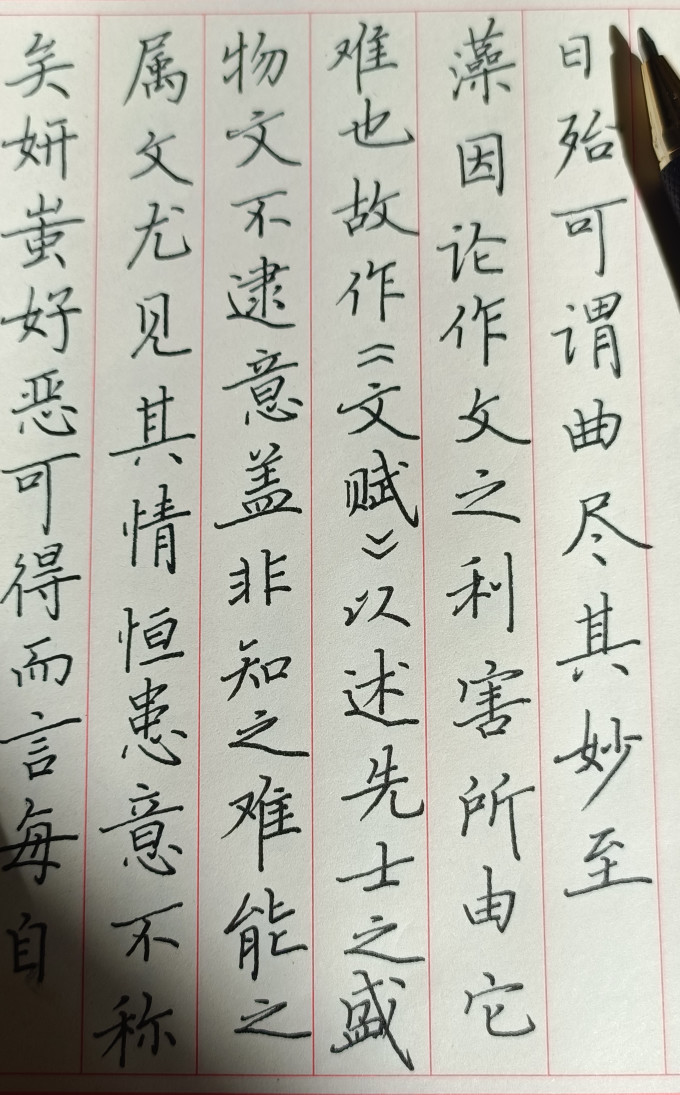 矣妍蚩好恶可得而言每自
属文尤见其情恒患意不称
物文不逮意盖非知之难能之
难也故作《文赋》以述先士之盛
藻因论作文之利害所由它
日殆可谓曲尽其妙至